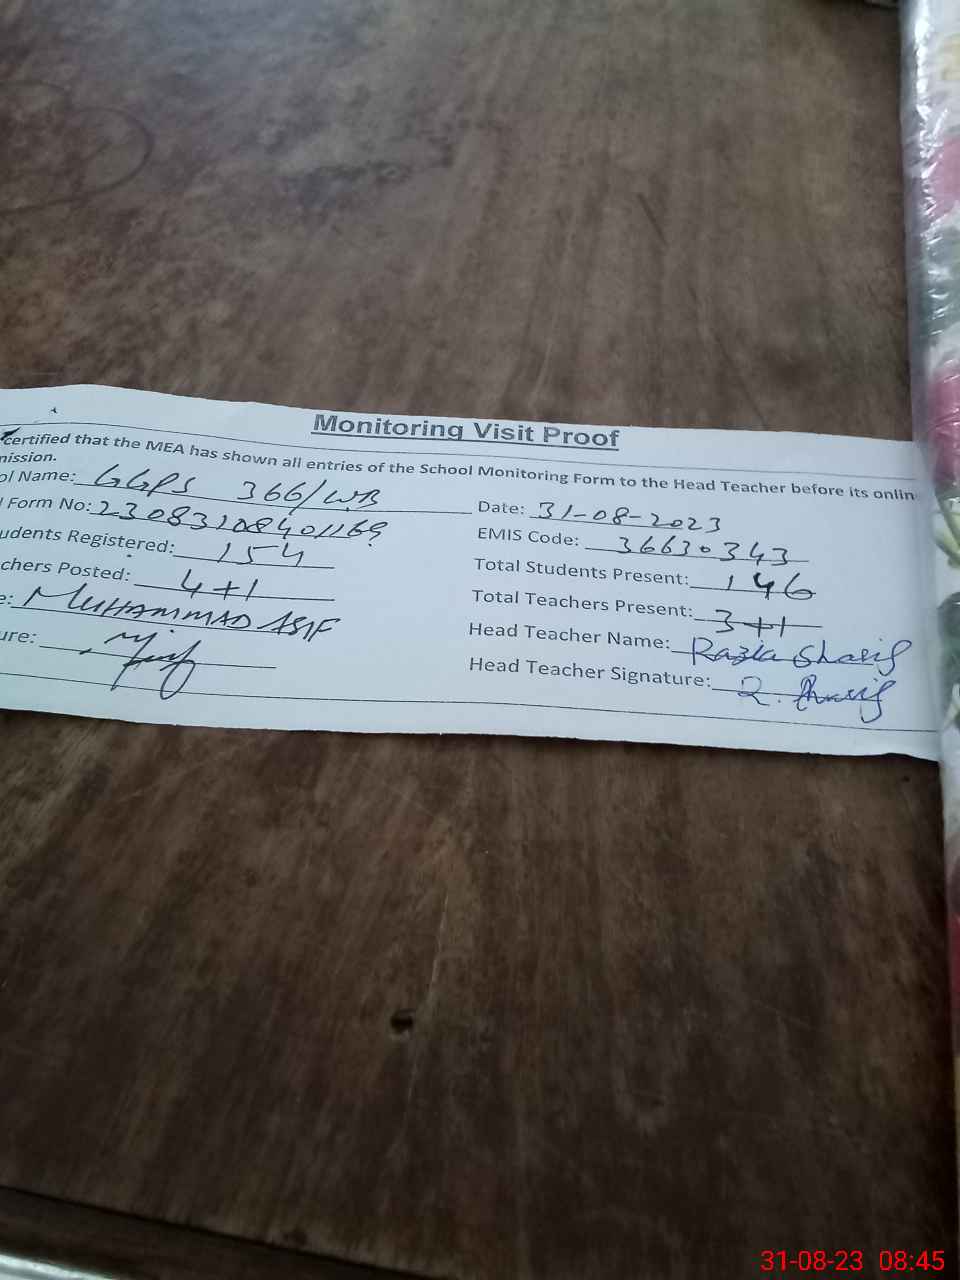 Monitoring Visit Proof
certified that the MEA has shown all entries of the School Monitoring Form to the Head Teacher before its onlin
mission.
ol Name: GGPS 366/WB
Date: 31-08-2023
l Form No: 23083108401169
EMIS Code: 36630343
udents Registered: 154
Total Students Present: 146
chers Posted: 4+1
Total Teachers Present: 3+1
e: MUHAMMAD ASIF
Head Teacher Name: Razia Sharif
ure:
Head Teacher Signature: R. Sharif
31-08-23 08:45